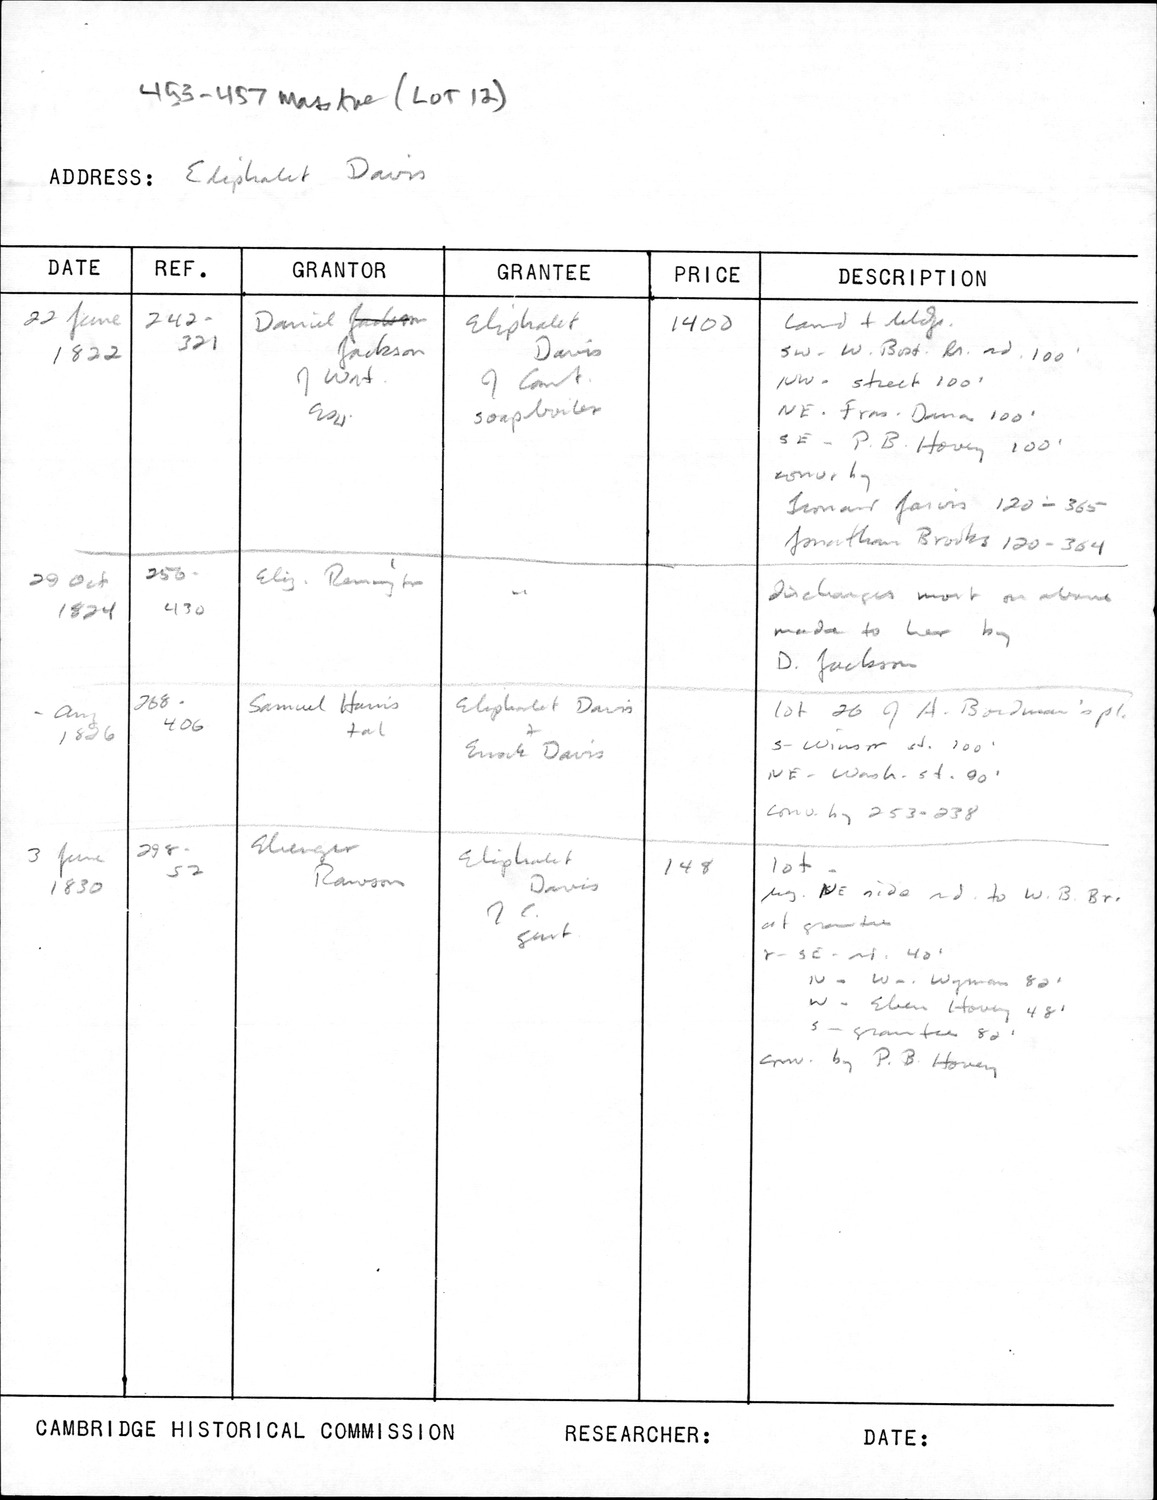 453-457 Mass Ave (LOT 12)
ADDRESS: Eliphalet Davis
DATE REF. GRANTOR GRANTEE PRICE DESCRIPTION
22 June 242- Daniel Jackson Eliphalet 1400 Land + bldgs.
1822 321 Jackson Davis SW- W. Bost. Br. rd. 100'
of Wat. of Camb. NW- street 100'
Esq. soapboiler NE- Fras. Dana 100'
SE- P.B. Hovey 100'
conv. by
Leonard Jarvis 120-365
Jonathan Brooks 120-364
29 Oct 256- Eliz. Remington " discharges mort on above
1824 430 made to her by
D. Jackson
- Aug 268- Samuel Harris Eliphalet Davis lot 26 of A. Bordman's pl.
1826 406 et al + S- Winsor st. 100'
Enoch Davis NE- Wash. st. 90'
conv. by 253-238
3 June 298- Ebenezer Eliphalet 148 lot -
1830 52 Rawson Davis beg. NE side rd. to W.B. Br.
of C. at grantee
gent r- SE- rd. 40'
N- Wm. Wyman 82'
W- Eben Hovey 48'
S- grantee 82'
conv. by P.B. Hovey
CAMBRIDGE HISTORICAL COMMISSION RESEARCHER: DATE: